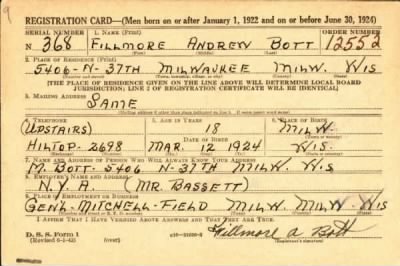 REGISTRATION CARD—(Men born on or after January 1, 1922 and on or before June 30, 1924)
SERIAL NUMBER 1. NAME (Print) ORDER NUMBER
N 368 FILLMORE ANDREW BOTT 12552
2. PLACE OF RESIDENCE (Print)
5406-N-37TH MILWAUKEE MILW. WIS
[THE PLACE OF RESIDENCE GIVEN ON THE LINE ABOVE WILL DETERMINE LOCAL BOARD
JURISDICTION; LINE 2 OF REGISTRATION CERTIFICATE WILL BE IDENTICAL]
3. MAILING ADDRESS
SAME
4. TELEPHONE 5. AGE IN YEARS 6. PLACE OF BIRTH
(UPSTAIRS) 18 MILW.
DATE OF BIRTH
HILTOP-2698 MAR. 12 1924 WIS.
7. NAME AND ADDRESS OF PERSON WHO WILL ALWAYS KNOW YOUR ADDRESS
M. BOTT-5406 N-37TH MILW. WIS.
8. EMPLOYER'S NAME AND ADDRESS
N.Y.A. (MR. BASSETT)
9. PLACE OF EMPLOYMENT OR BUSINESS
GENL-MITCHELL-FIELD MILW. MILW. WIS
I AFFIRM THAT I HAVE VERIFIED ABOVE ANSWERS AND THAT THEY ARE TRUE.
D. S. S. Form 1
(Revised 6-9-42) Fillmore A Bott
(Registrant's signature)